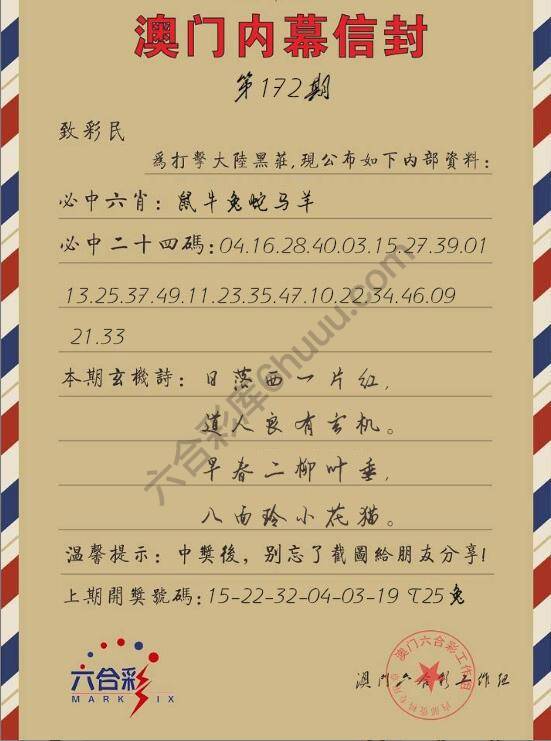 澳门内幕信封
第172期
致彩民
為打擊大陸黑莊,現公布如下内部資料:
必中六肖: 鼠牛兔蛇马羊
必中二十四碼:04.16.28.40.03.15.27.39.01
13.25.37.49.11.23.35.47.10.22.34.46.09
21.33
本期玄機詩: 日落西一片红,
道人良有玄机。
早春二柳叶垂,
八面玲小花猫。
温馨提示: 中獎後, 别忘了截圖給朋友分享!
上期開獎號碼:15-22-32-04-03-19 T25兔
六合彩库@huuu.com
六合彩
MARK SIX
澳门六合彩工作组
澳门六合彩工作组